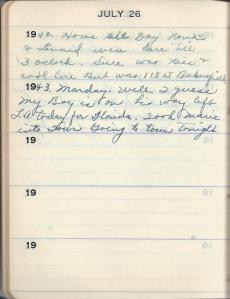 JULY 26
1942. Home all Day
& were here till
3 o'clock. Sure was Nice &
cool here But was 113 at Bakersfield
1943. Monday. Well I guess
My Boy is on his way left
LA today for Florida. took Marie
into town Going to town tonight
19
19
19